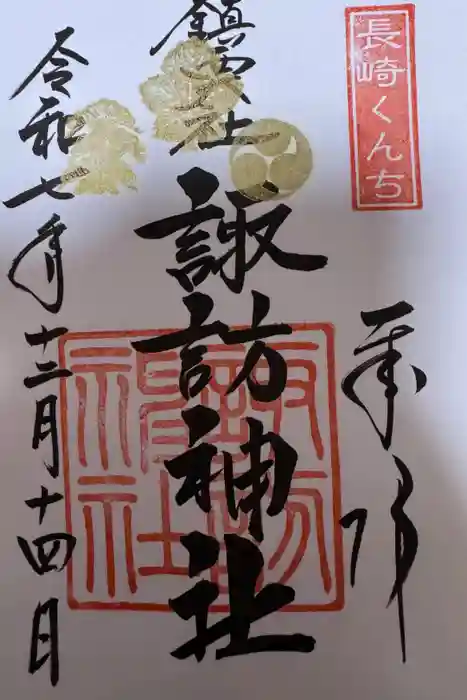 長崎くんち
奉拝
鎮西大社
諏訪神社
諏訪神社
令和七年十二月十四日